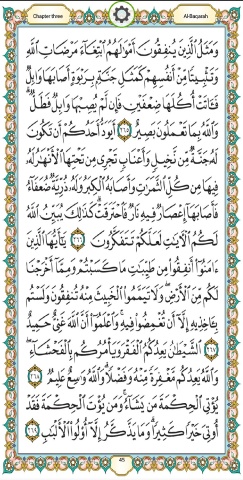 Chapter three
Al-Baqarah
وَمَثَلُ الَّذِينَ يُنفِقُونَ أَمْوَالَهُمُ ابْتِغَاءَ مَرْضَاتِ اللَّهِ
وَتَثْبِيتًا مِّنْ أَنفُسِهِمْ كَمَثَلِ جَنَّةٍ بِرَبْوَةٍ أَصَابَهَا وَابِلٌ
فَآتَتْ أُكُلَهَا ضِعْفَيْنِ فَإِن لَّمْ يُصِبْهَا وَابِلٌ فَطَلٌّ
وَاللَّهُ بِمَا تَعْمَلُونَ بَصِيرٌ ٢٦٥ أَيَوَدُّ أَحَدُكُمْ أَن تَكُونَ
لَهُ جَنَّةٌ مِّن نَّخِيلٍ وَأَعْنَابٍ تَجْرِي مِن تَحْتِهَا الْأَنْهَارُ لَهُ
فِيهَا مِن كُلِّ الثَّمَرَاتِ وَأَصَابَهُ الْكِبَرُ وَلَهُ ذُرِّيَّةٌ ضُعَفَاءُ
فَأَصَابَهَا إِعْصَارٌ فِيهِ نَارٌ فَاحْتَرَقَتْ كَذَٰلِكَ يُبَيِّنُ اللَّهُ
لَكُمُ الْآيَاتِ لَعَلَّكُمْ تَتَفَكَّرُونَ ٢٦٦ يَا أَيُّهَا الَّذِينَ
آمَنُوا أَنفِقُوا مِن طَيِّبَاتِ مَا كَسَبْتُمْ وَمِمَّا أَخْرَجْنَا
لَكُم مِّنَ الْأَرْضِ وَلَا تَيَمَّمُوا الْخَبِيثَ مِنْهُ تُنفِقُونَ وَلَسْتُم
بِآخِذِيهِ إِلَّا أَن تُغْمِضُوا فِيهِ وَاعْلَمُوا أَنَّ اللَّهَ غَنِيٌّ حَمِيدٌ
٢٦٧ الشَّيْطَانُ يَعِدُكُمُ الْفَقْرَ وَيَأْمُرُكُم بِالْفَحْشَاءِ
وَاللَّهُ يَعِدُكُم مَّغْفِرَةً مِّنْهُ وَفَضْلًا وَاللَّهُ وَاسِعٌ عَلِيمٌ ٢٦٨
يُؤْتِي الْحِكْمَةَ مَن يَشَاءُ وَمَن يُؤْتَ الْحِكْمَةَ فَقَدْ
أُوتِيَ خَيْرًا كَثِيرًا وَمَا يَذَّكَّرُ إِلَّا أُولُو الْأَلْبَابِ ٢٦٩
45